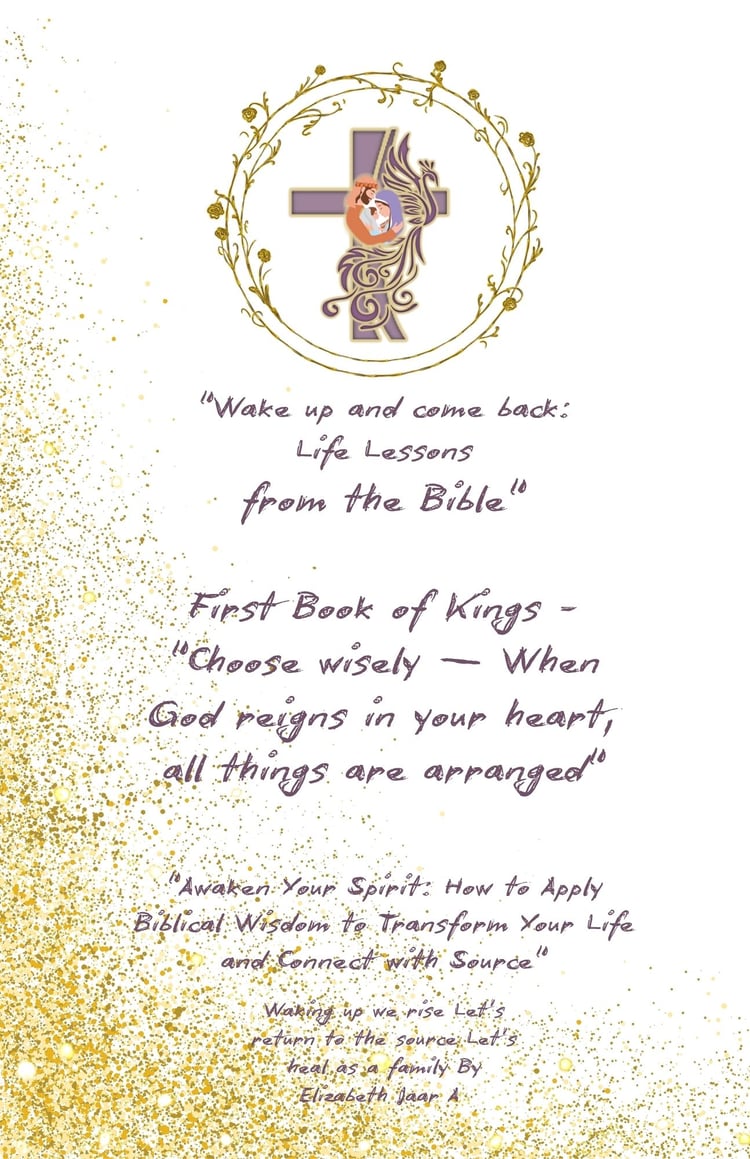 "Wake up and come back:
Life Lessons
from the Bible"
First Book of Kings -
"Choose wisely — When
God reigns in your heart,
all things are arranged"
"Awaken Your Spirit: How to Apply
Biblical Wisdom to Transform Your Life
and Connect with Source"
Waking up we rise Let's
return to the source Let's
heal as a family By
Elizabeth Jaar A